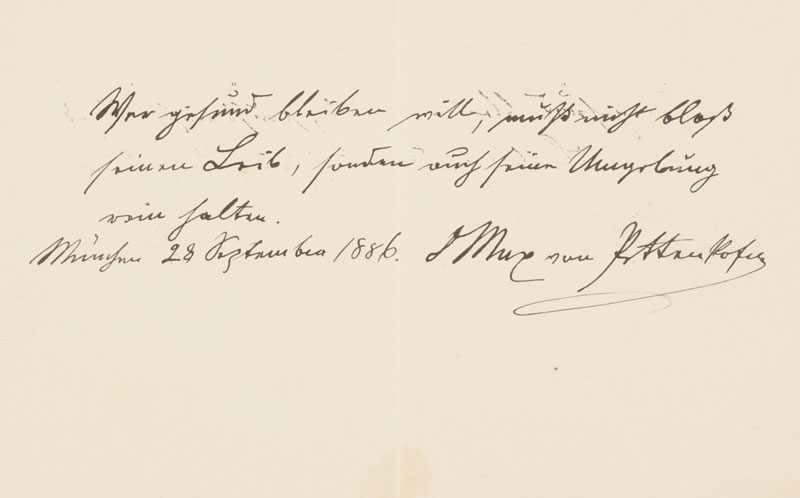 Wer gesund bleiben will, muß nicht bloß
seinen Leib, sondern auch seine Umgebung
rein halten.
München 28 September 1886. Max von Pettenkofer